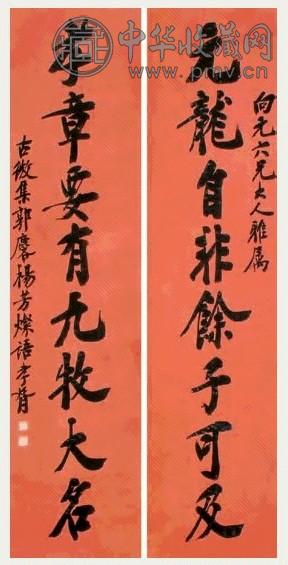 中华收藏网
www.pmv.cn
向元六兄大人雅属
元龍自非餘子可及
孝章要有九牧大名
古微集郭麐楊芳燦語孝臧